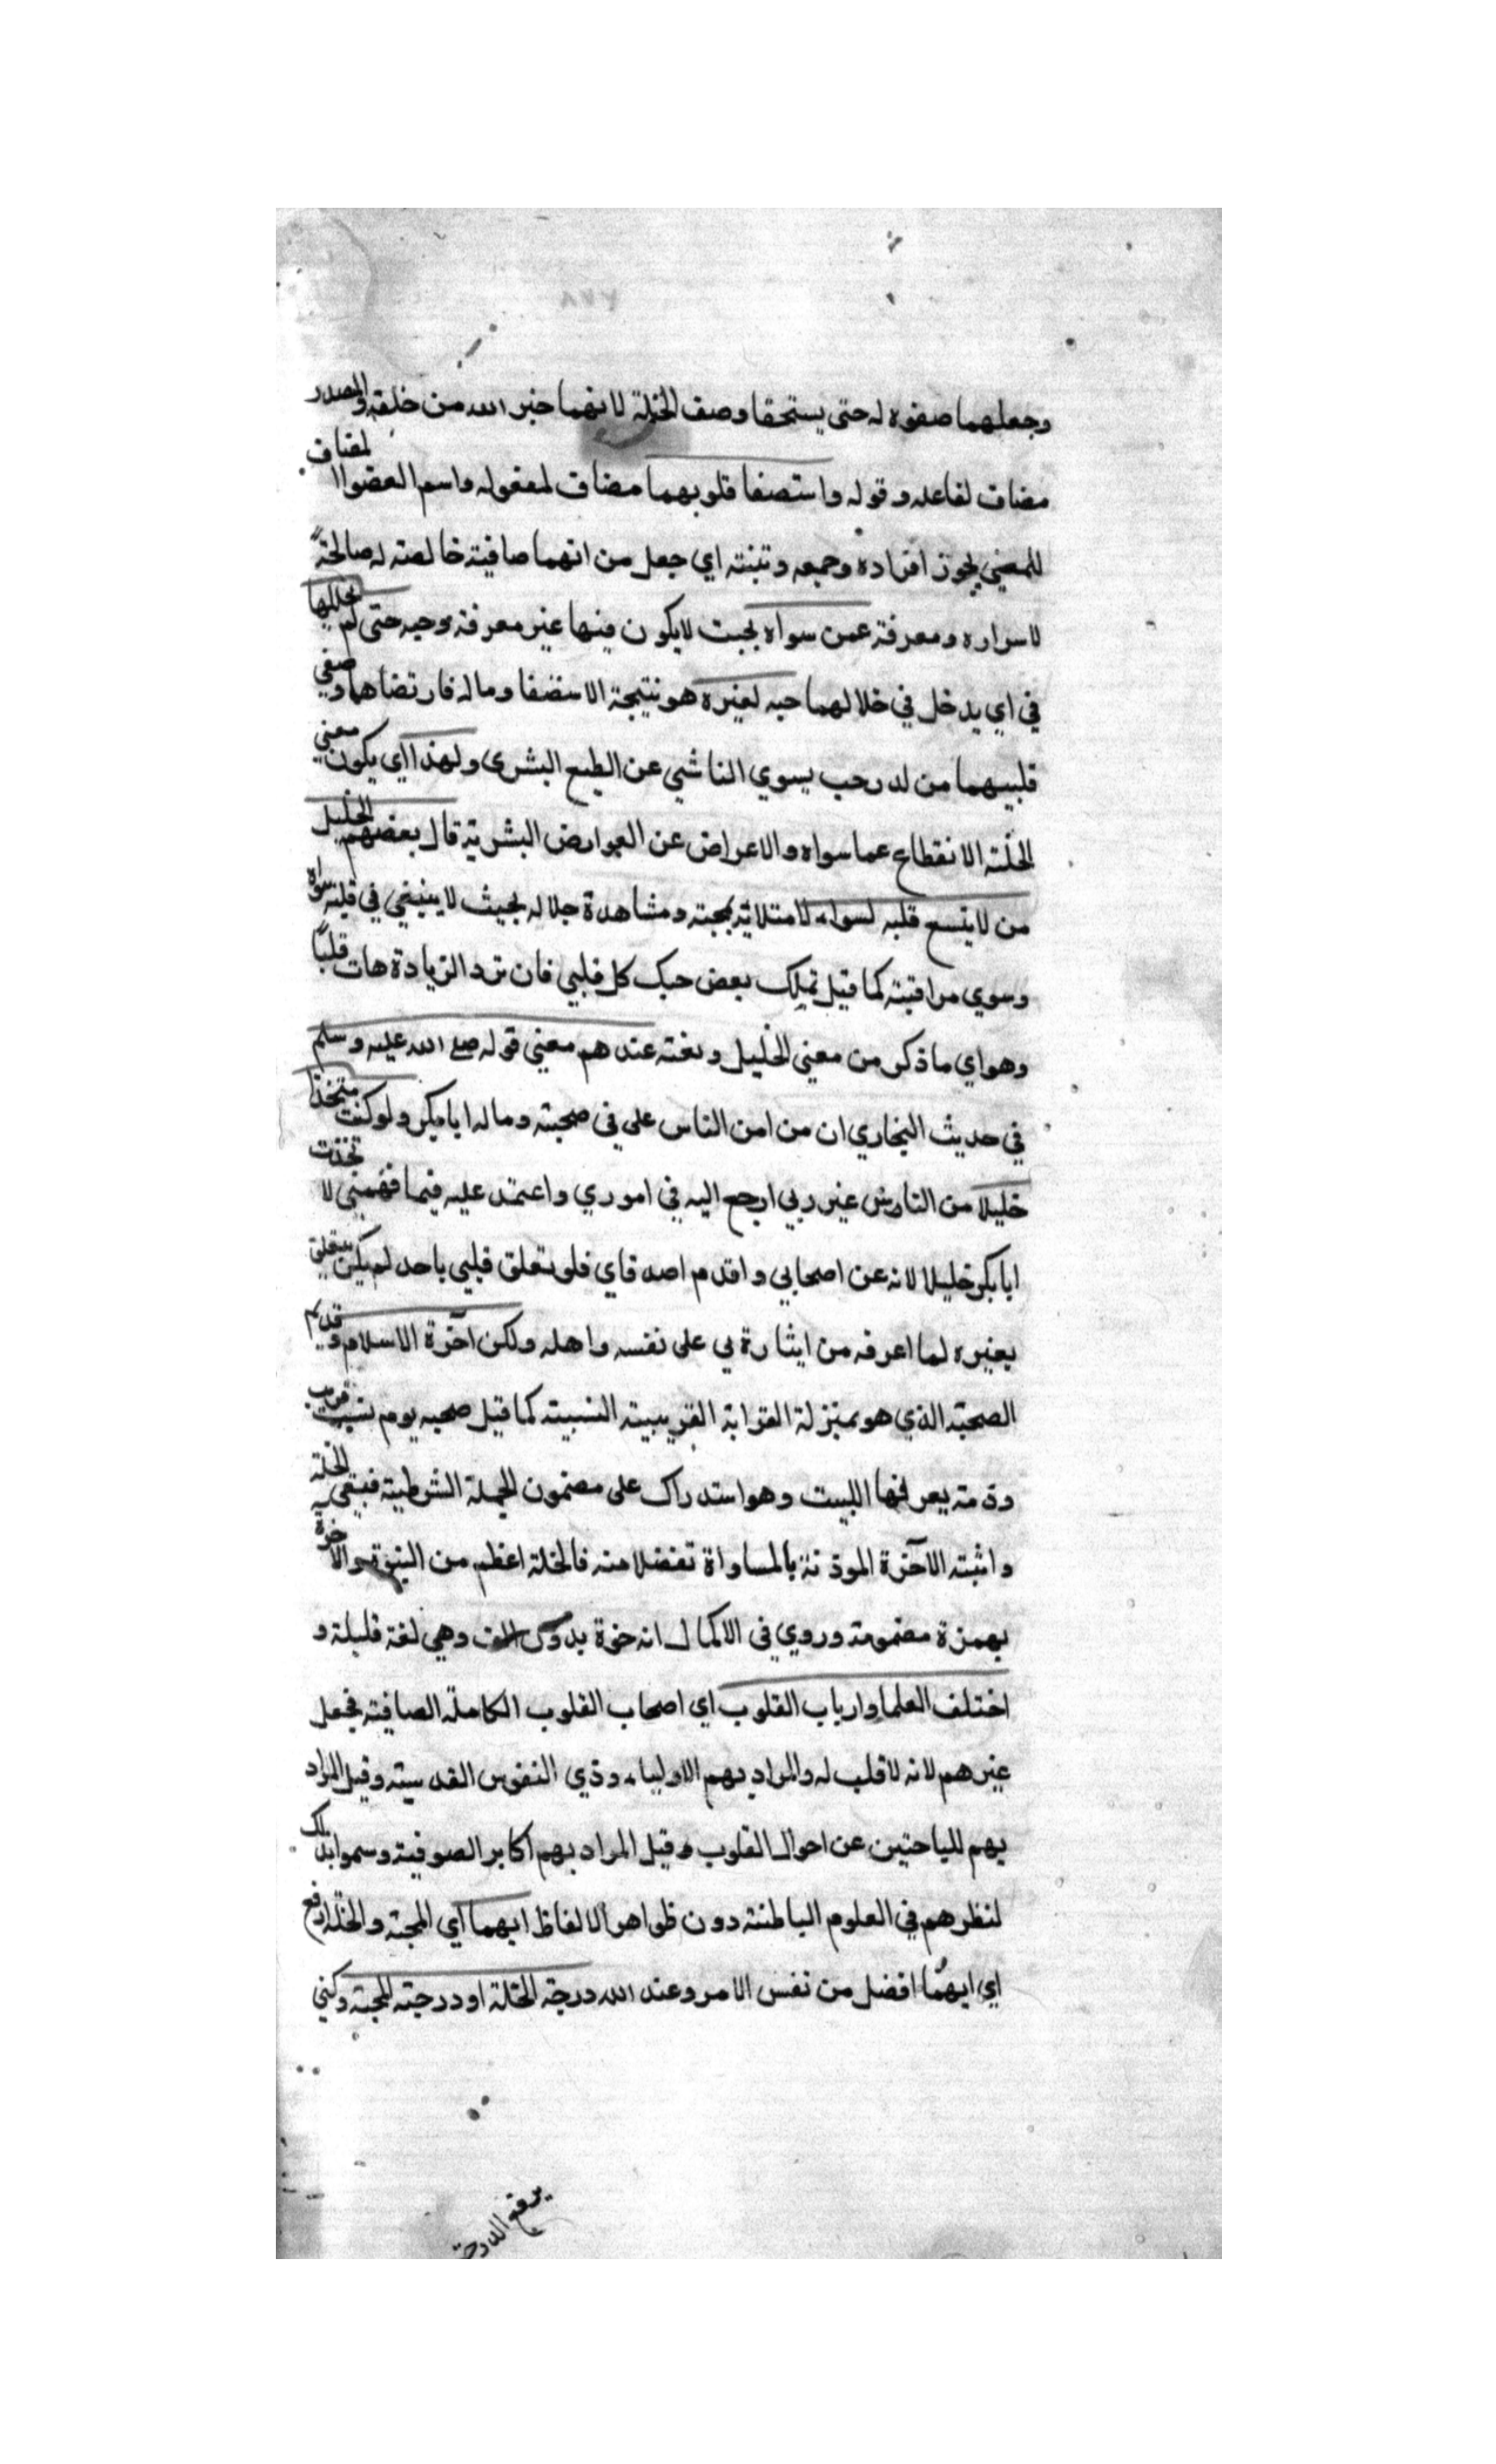 وجعلهما صفوه له حتى يستحقا وصف الخلة لانهما خير الله من خلقه والمصدر
مضاف لفاعله وقوله واستصفا قلوبهما مضاف لمفعوله واسم العضو المضاف
للمعني يجوز افراده وجمعه وتثنته اي جعل من انهما صافية خالصة له صالحة
لاسراره ومعرفة عمن سواه بحيث لا يكون فيها غير معرفة وحبه حتى لم يخللها
في اي يدخل في خلالهما حبه لغيره هو نتيجة الاستصفا وماله فارتضاهما وصفي
قلبيهما من لد رحب يسوي الناشي عن الطبع البشري ولهذا اي يكون معني
الخلة الانقطاع عما سواه والاعراض عن العوارض البشرية قال بعضهم الخليل
من لا يتسع قلبه لسواه لامتلائه بمحبته ومشاهدة جلاله بحيث لا يبنيغي في قلبه سواه
وسوي مراقبته كما قيل تملك بعض حبك كل قلبي فان ترد الزيادة هات قلبًا
وهو اي ما ذكر من معني الخليل ونعته عندهم معني قوله صلى الله عليه وسلم
في حديث البخاري ان من امن الناس على في صحبته وماله ابا بكر ولو كنت متخذا
خليلا من الناس غير ربي ارجع اليه في اموري واعتمد عليه فيما فهمني لا تخذت
ابا بكر خليلا لانه عن اصحابي واقدم اصدقاي فلو تعلق قلبي باحد لم يكن يتعلق
بغيره لما اعرفه من ايثارة بي على نفسه واهله ولكن اخرة الاسلام وقديم
الصحبة الذي هو بمنزلة القرابة القريبية النسبية كما قيل صحبه يوم نسب قريب
وذمة يعرفها اللبيب وهو استدراك على مضمون الجملة الشرطية فبقي الخلة
واثبته الاخرة الموذنة بالمساواة تفضلا منه فالخلة اعظم من البنوة والاخوة
بهمزة مضمومة وروي في الاكمال انه خوة بدون الف وهي لغة قليلة و
اختلف العلما وارباب القلوب اي اصحاب القلوب الكاملة الصافية فجعل
غيرهم لانه لا قلب له والمراد بهم الاولياء وذي النفوس القدسية وقيل المراد
بهم للباحثين عن احوال القلوب وقيل المراد بهم اكابر الصوفية وسموا بذلك
لنظرهم في العلوم الباطنة دون ظواهر الالفاظ ايهما اي المحبة والخلة ارفع
اي ايهما افضل من نفس الامر وعند الله درجة الخلة او درجة المحبة وكني